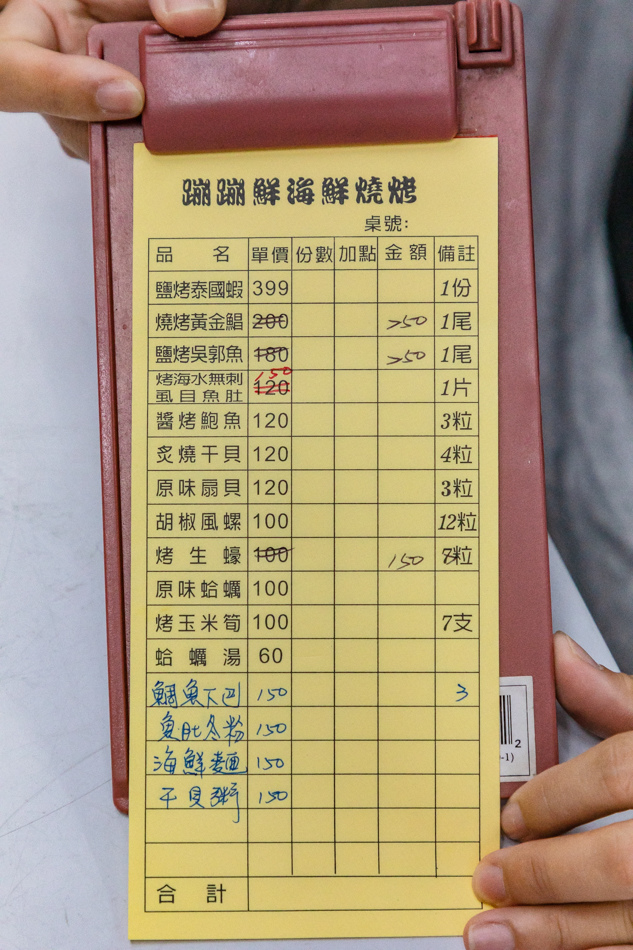 蹦蹦鮮海鮮燒烤
桌號:
品名 單價 份數 加點 金額 備註
鹽烤泰國蝦 399 1份
燒烤黃金鯧 200 250 1尾
鹽烤吳郭魚 180 250 1尾
烤海水無刺 150
虱目魚肚 120 1片
醬烤鮑魚 120 3粒
炙燒干貝 120 4粒
原味扇貝 120 3粒
胡椒風螺 100 12粒
烤生蠔 100 150 8粒
原味蛤蠣 100
烤玉米筍 100 7支
蛤蠣湯 60
鯛魚下巴 150 3
魚肚冬粉 150
海鮮麵 150
干貝粥 150
合計
2
-1)